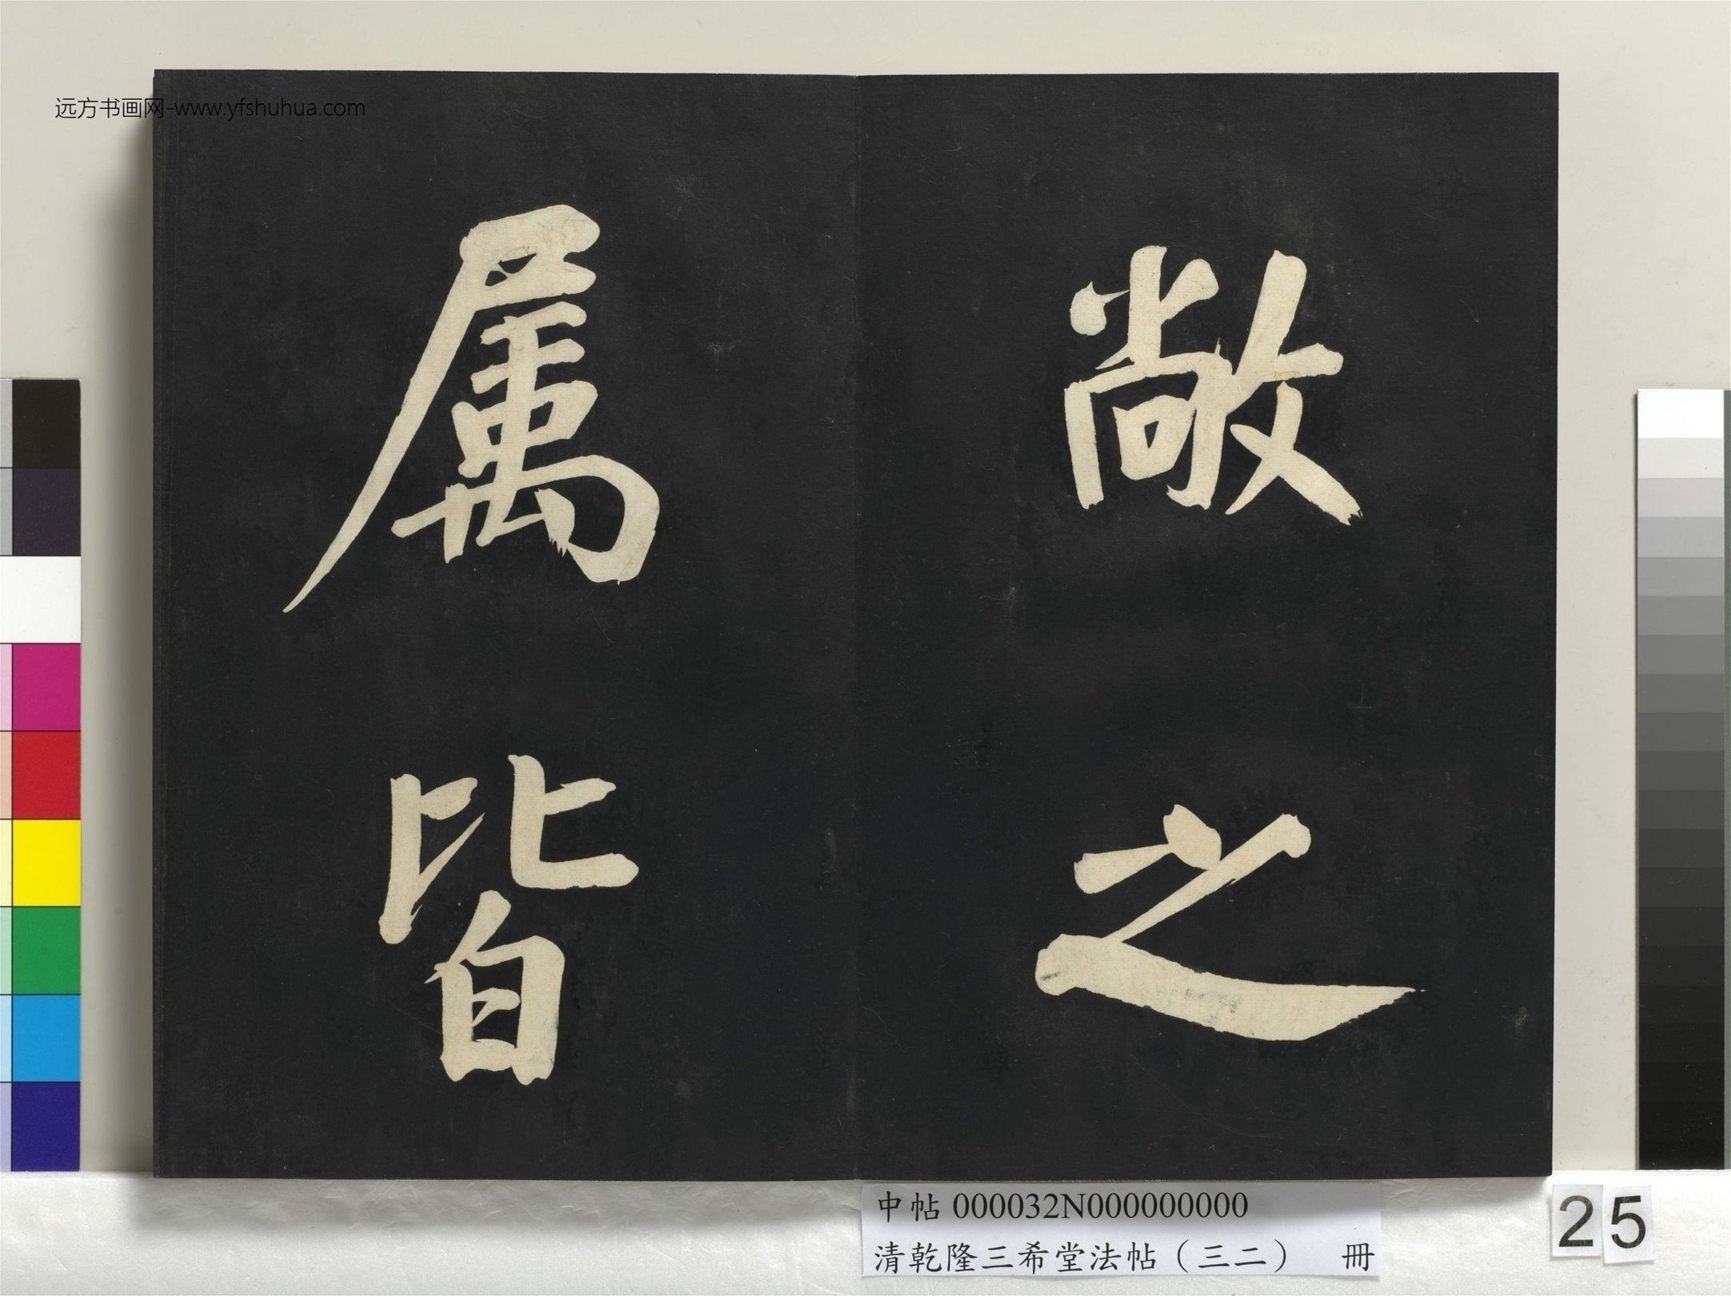 远方书画网-www.yfshuhua.com
敞之
属皆
中帖 000032N000000000
清乾隆三希堂法帖（三二） 冊
25